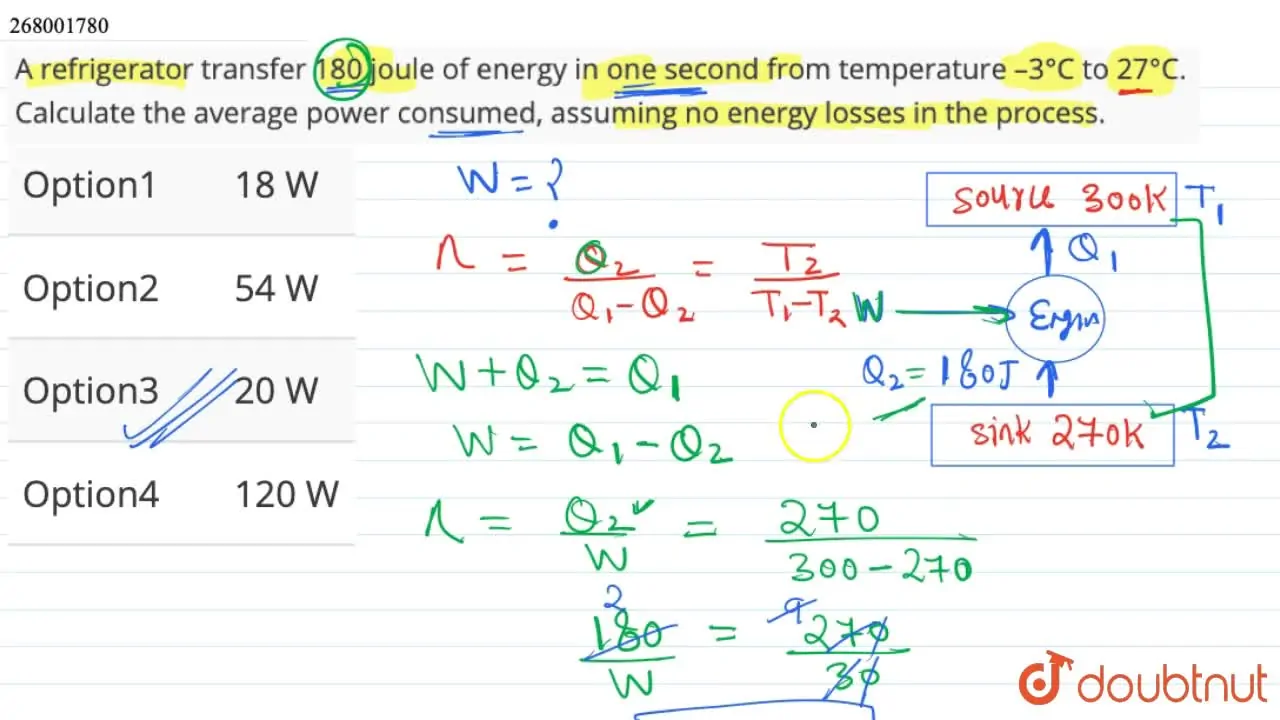 268001780
A refrigerator transfer 180 joule of energy in one second from temperature –3°C to 27°C.
Calculate the average power consumed, assuming no energy losses in the process.
Option1 18 W
Option2 54 W
Option3 20 W
Option4 120 W
W = ?
r = Q2 / Q1 – Q2 = T2 / T1 – T2
W + Q2 = Q1
W = Q1 – Q2
r = Q2 / W = 270 / 300 – 270
2 9
180 / W = 270 / 30
source 300K T1
Q1
W
Q2 = 180J
sink 270K T2
doubtnut